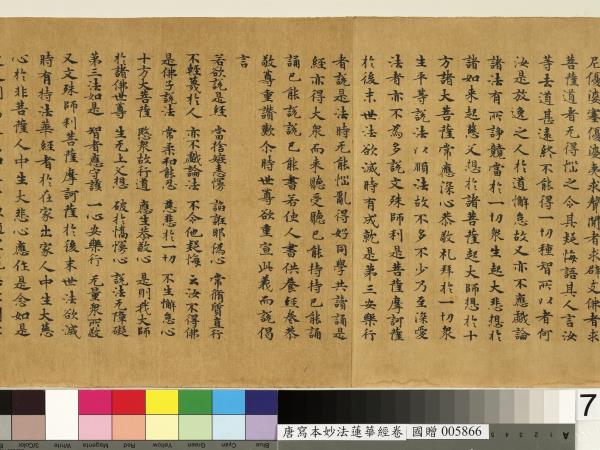 尼優婆塞優婆夷求聲聞者求辟支佛者求
菩薩道者无得惱之令其疑悔語其人言汝
等去道甚遠終不能得一切種智所以者何
汝是放逸之人於道懈怠故又亦不應戲論
諸法有所諍競當於一切衆生起大悲想於
諸如來起慈父想於諸菩薩起大師想於十
方諸大菩薩常應深心恭敬礼拜於一切衆
生平等說法以順法故不多不少乃至深愛
法者亦不為多說文殊師利是菩薩摩訶薩
於後末世法欲滅時有成就是第三安樂行
者說是法時无能惱亂得好同學共讀誦是
經亦得大衆而來聽受聽已能持持已能誦
誦已能說說已能書若使人書供養經卷恭
敬尊重讚歎尒時世尊欲重宣此義而說偈
言
若欲說是經 當捨嫉恚慢 諂誑耶偽心 常脩質直行
不輕蔑於人 亦不戲論法 不令他疑悔 云汝不得佛
是佛子說法 常柔和能忍 慈悲於一切 不生懈怠心
十方大菩薩 愍衆故行道 應生恭敬心 是則我大師
於諸佛世尊 生无上父想 破於憍慢心 說法无障礙
第三法如是 智者應守護 一心安樂行 无量衆所敬
又文殊師利菩薩摩訶薩於後末世法欲滅
時有持法華經者於在家出家人中生大慈
心於非菩薩人中生大悲心應作是念如是
唐寫本妙法蓮華經卷 國贈 005866
7
A
Blue
Cyan
Green
Yellow
Red
Magenta
White
3/Color
Black